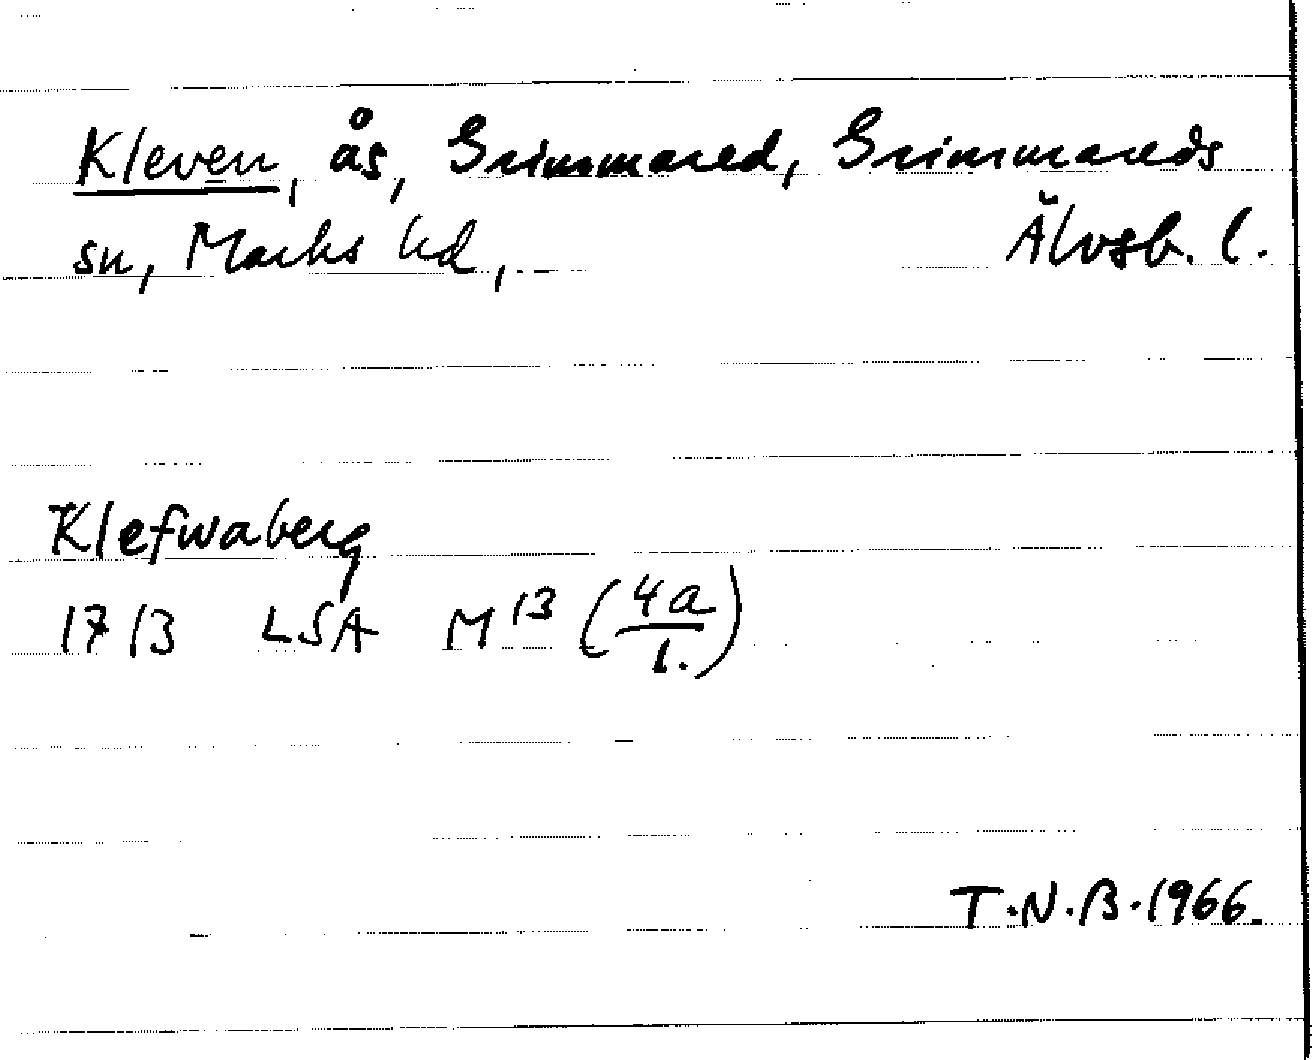 Kleven, ås, Grimmared, Grimmareds
sn, Marks hd, Älvsb. l.
Klefwaberg
1713 LSA M 13 (4a/1.)
T.N.B. 1966.